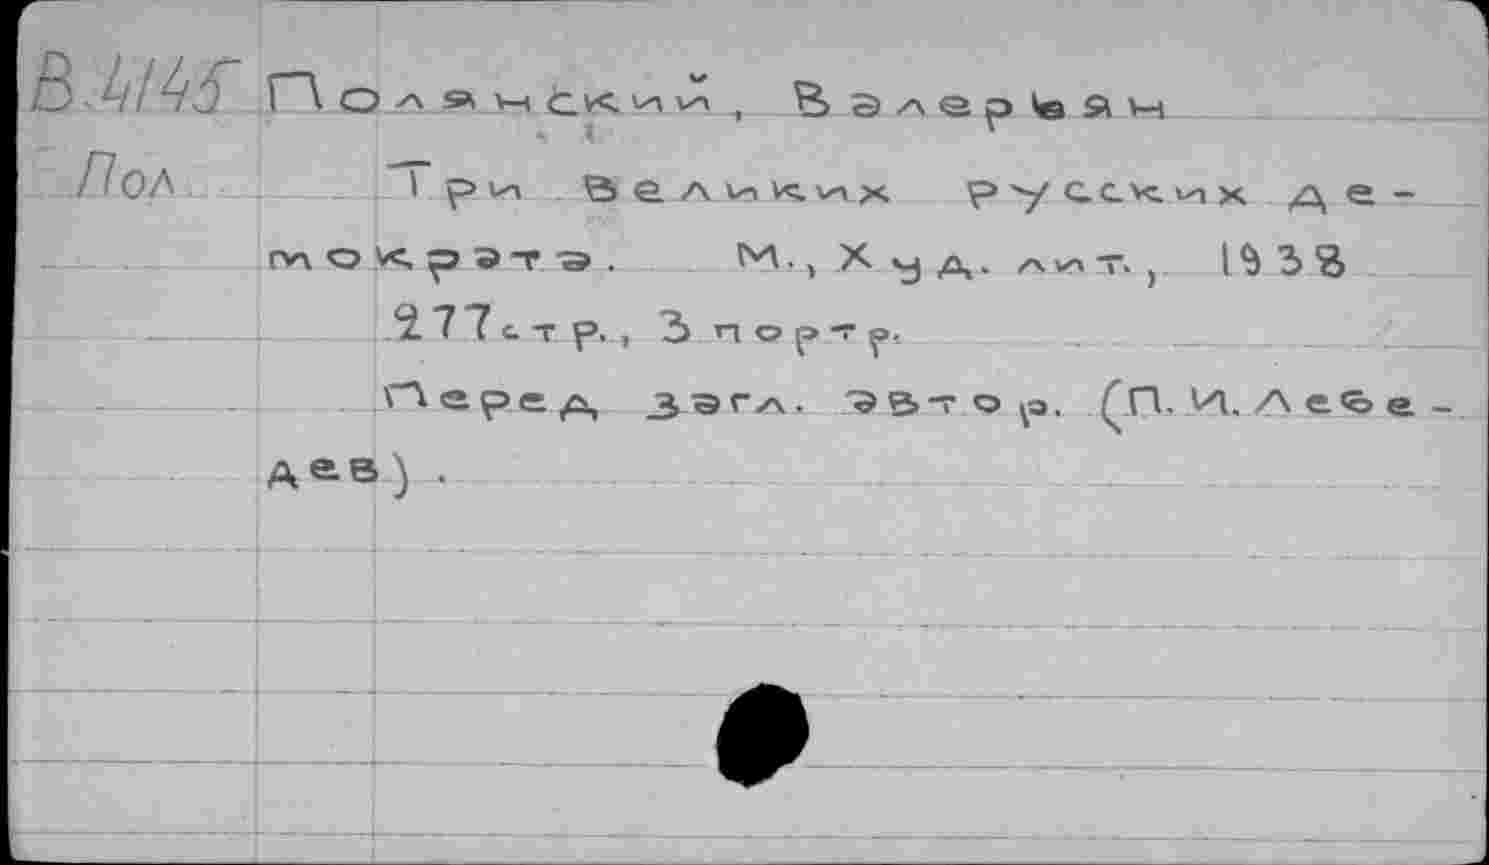 В.4145 Полянский, Валерьян
Пол Три великих русских де-
мократа. М., Худ. лит., 1938
277 стр., 3 портр.
Перед загл. автор. (П. И. Лебе-
дев).